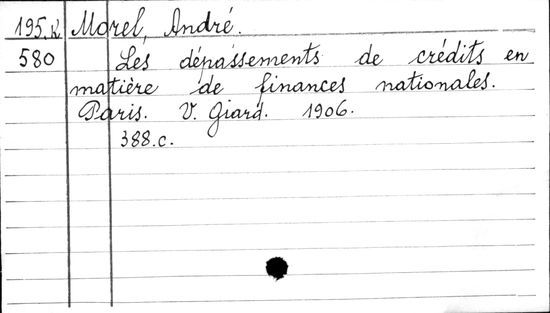 195.K Morel, André.
580 Les dépassements de crédits en
matière de finances nationales.
Paris. V. Giard. 1906.
388.c.